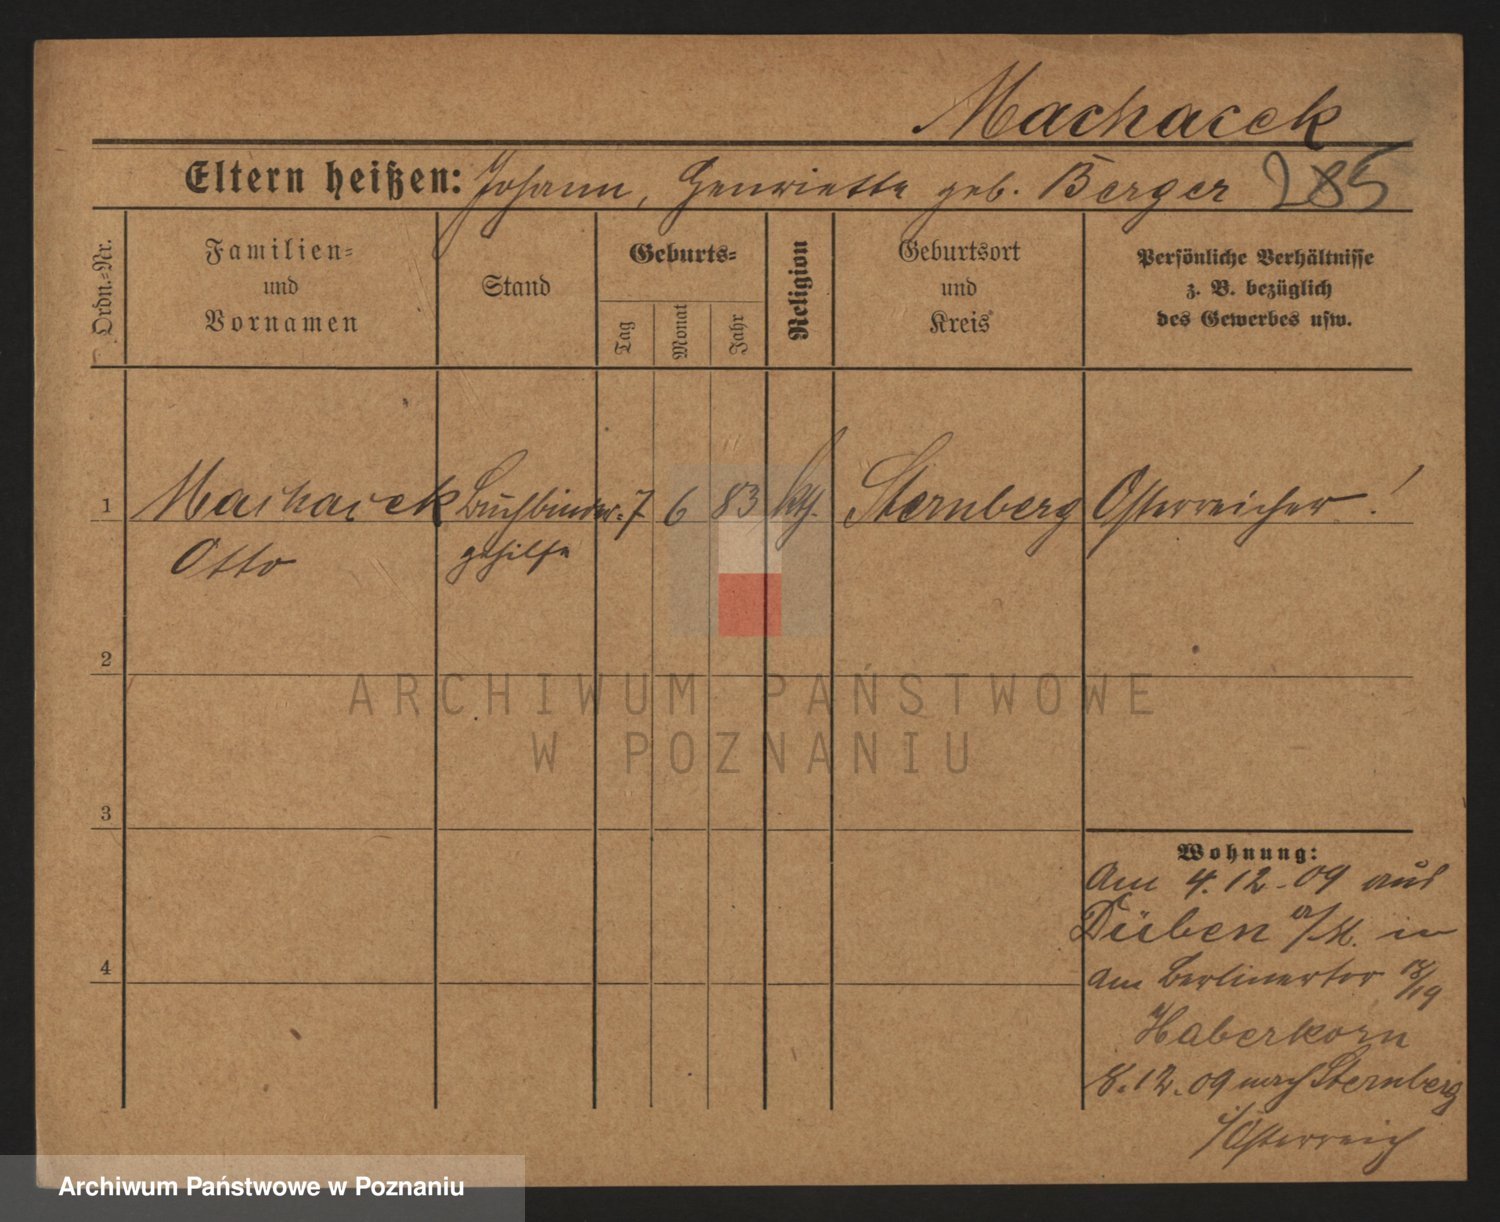 Machacek
Eltern heißen: Johann, Henriette geb. Berger 285
Ordn.-Nr.
Familien-
und
Vornamen
Stand
Geburts-
Tag
Monat
Jahr
Religion
Geburtsort
und
Kreis
Persönliche Verhältnisse
z. B. bezüglich
des Gewerbes usw.
1 Machacek Buchbinder- 7 6 83 kth. Sternberg Österreicher!
Otto gehilfe
2
ARCHIWUM PAŃSTWOWE
W POZNANIU
3
Wohnung:
Am 4.12.09 aus
Düben a/M. in
4
Am Berlinertor 18/19
Haberkorn
8.12.09 nach Sternberg
i/Österreich
Archiwum Państwowe w Poznaniu